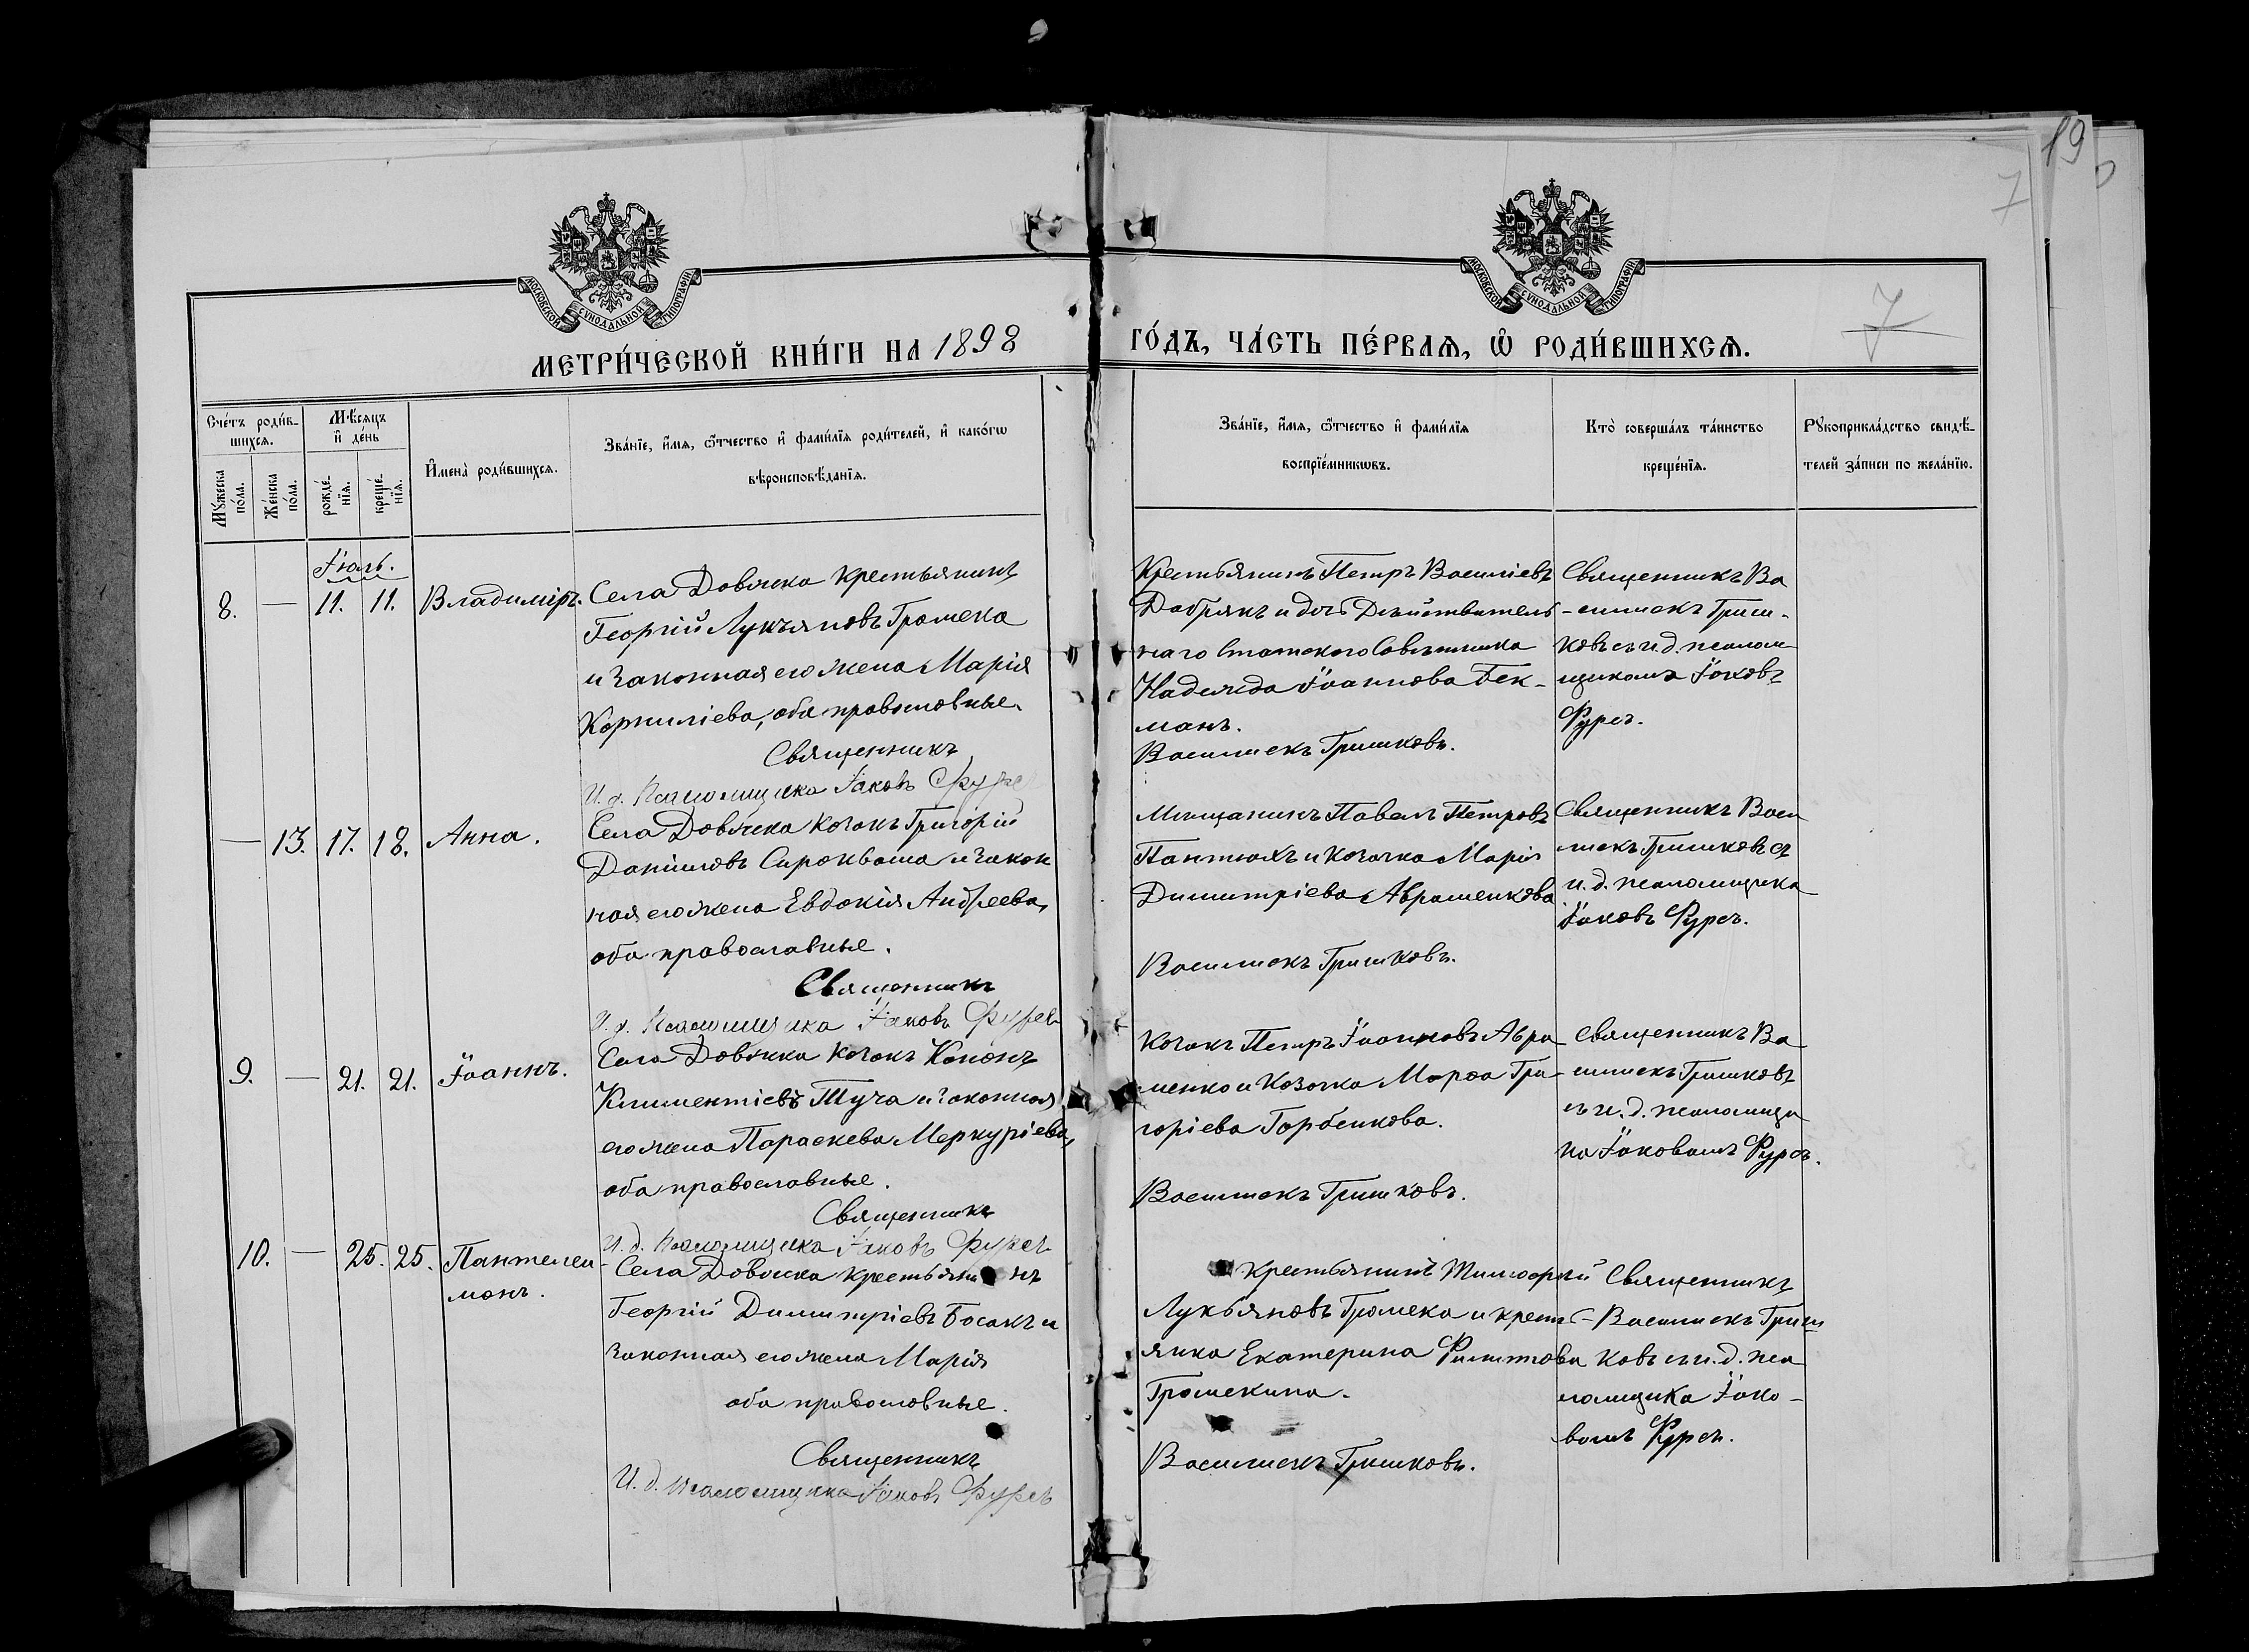 19
7
МОСКОВСКОЙ СѴНОДАЛЬНОЙ ТИПОГРАФІИ
МОСКОВСКОЙ СѴНОДАЛЬНОЙ ТИПОГРАФІИ
7
МЕТРИ́ЧЕСКОЙ КНИ́ГИ НА 1898
ГО́ДЪ, ЧА́СТЬ ПЕ́РВАѦ, Ѽ РОДИ́ВШИХСѦ.
Сче́тъ роди́в-
шихсѧ.
Мѣ́сѧцъ
и҆ де́нь
Мꙋ́жеска
по́ла.
Же́нска
по́ла.
рожде́-
нїѧ.
креще́-
нїѧ.
И҆мена̀ роди́вшихсѧ.
Зва́нїе, и҆́мѧ, ѻ҆́тчество и҆ фами́лїѧ роди́телей, и҆ како́гѡ
вѣроисповѣ́данїѧ.
Зва́нїе, и҆́мѧ, ѻ҆́тчество и҆ фами́лїѧ
воспрїе́мникѡвъ.
Кто̀ соверша́лъ та́инство
креще́нїѧ.
Рꙋкоприкла́дство свидѣ́-
телей за́писи по жела́нїю.
Іюль.
8. — 11. 11. Владиміръ.
Села Довжека крестьянинъ
Георгій Лукьяновъ Громека
и законная его жена Марія
Корниліева, оба православные.
Священникъ
И. д. Псаломщика Іаковъ Фурсъ
Крестьянинъ Петръ Василіевъ
Добрякъ и дочь Дѣйствитель-
наго Статскаго Совѣтника
Надежда Іоаннова Бек-
манъ.
Василискъ Гришковъ.
Священникъ Ва
-силискъ Гриш-
ковъ съ и. д. псалом
щикомъ Іаковъ
Фурсъ.
— 13. 17. 18. Анна.
Села Довжека козакъ Григорій
Даніиловъ Сироквашa и закон
ная его жена Евдокія Андреева,
оба православные.
Священникъ
И. д. Псаломщика Іаковъ Фурсъ
Мѣщанинъ Павелъ Петровъ
Пантюхъ и козачка Марія
Димитріева Авраменкова
Василискъ Гришковъ.
Священникъ Васи
лискъ Гришковъ съ
и. д. псаломщика
Іаковъ Фурсъ.
9. — 21. 21. Іоаннъ.
Села Довжека козакъ Кононъ
Климентіевъ Туча и законная
его жена Параскева Меркуріева,
оба православные.
Священникъ
И. д. Псаломщика Іаковъ Фурсъ
Козакъ Петръ Іоанновъ Авра
менко и козачка Марѳа Гри-
горіева Горбенкова.
Василискъ Гришковъ.
Священникъ Ва
-силискъ Гришковъ
съ и. д. псаломщи
ка Іаковомъ Фурсъ.
10. — 25. 25. Пантелеи
монъ.
Села Довжека крестьянинъ
Георгій Димитріевъ Босакъ и
законная его жена Марія
оба православные.
Священникъ
И. д. псаломщика Іаковъ Фурсъ
Крестьянинъ Тимоѳей
Лукьяновъ Громека и кресть-
янка Екатерина Филиппова
Громекина.
Василискъ Гришковъ.
Священникъ
Василискъ Гриш
ковъ съ и. д. пса
ломщика Іако-
вомъ Фурсъ.